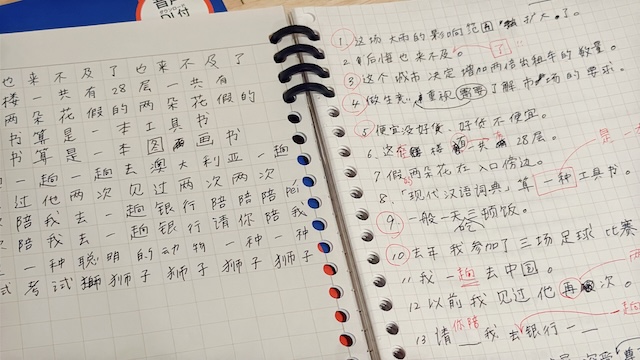 音声
DL付
也来不及了也来不及了
楼一共有28层一共有
两朵花假的两朵花假的
书算是一本工具书
书算是一本图画书
一趟一趟去澳大利亚一趟
过他两次见过两次两次
陪我去一趟银行陪陪陪pei
陪我去一趟银行请你陪我
一种聪明的动物一种一种
试考试狮狮子狮子狮子狮子
1.这场大雨的影响范围扩大了。
2后悔也来不及。了
3这个城市决定增加两倍出租车的数量。
4做生意,重视需要了解市场的要求。
5便宜没好货、好货不便宜。
6.这楼一共28层。
7假两朵花在入口傍边。
8.「现代汉语词典」算一种工具书。
是一
9一般一天吃三顿饭。
10去年我参加了三场足球比赛
11我一趟去中国。
12以前我见过他再次。
两
13请你陪我去银行一一